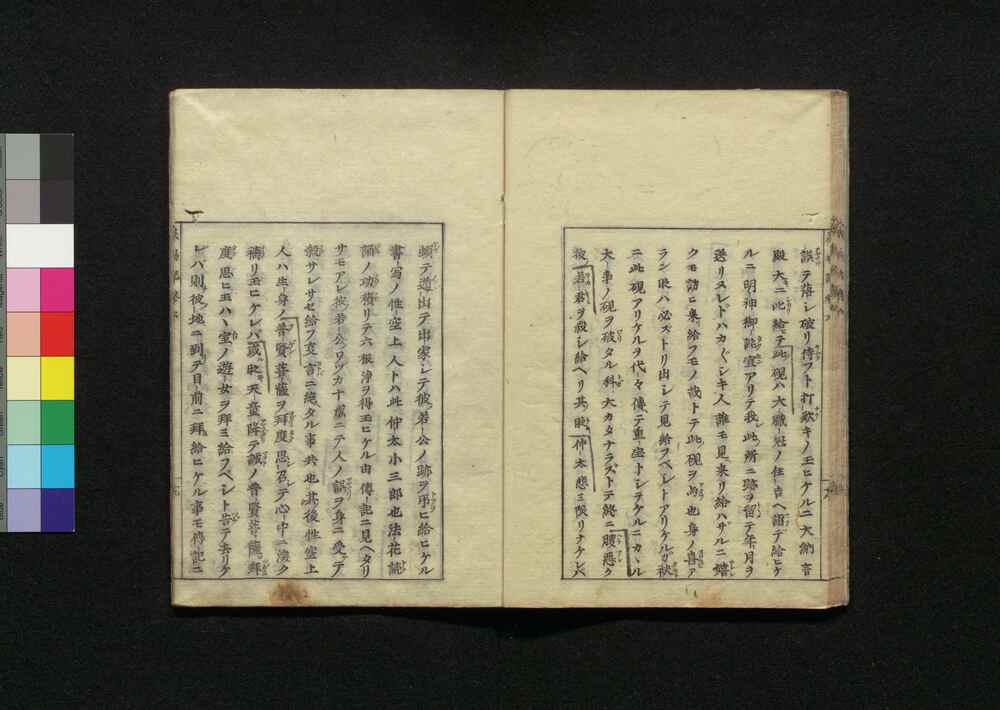 誤テ落シ破リ侍フト打歎キノ玉ヒケルニ大納言
殿大ニ此給テ此硯ハ大職冠ノ住吉ヘ詣テ給ヒケ
ルニ明神御託宣アリテ我此所ニ跡ヲ留テ年月ヲ
送リヌレドハカ〴〵シキ人誰モ見来リ給ハザルニ嬉
クモ訪ヒ来給フモノ哉トテ此硯ヲ為也身ノ喜ア
ラン時ハ必ズトリ出シテ見給フベシトアリケルガ
ニ此硯アリケルヲ代々傳テ重宝トシテケルニカヽル
大事ノ硯ヲ破タル科大カタナラズトテ終ニ腹悪ク
彼若君ヲ殺シ給ヘリ其時仲太悲ミ限リナケレバ
頓テ遁出テ出家シテ彼若公ノ跡ヲ弔ヒ給ヒケル
書写ノ性空上人トハ此仲太小三郎也法花読
誦ノ功積リテ六根浄ヲ得玉ヒケル由傳記ニ見ヘタリ
サモアレ彼若公ワヅカ十歳ニテ人ノ誤ヲ身ニ受テ
殺サレサセ給フ事言ニ絶タル事共也其後性空上
人ハ生身ノ普賢菩薩ヲ拜度思召テ心中ニ深ク
祷リ玉ヒケレバ或時天童降テ誠ノ普賢菩薩ヲ拜
度思ヒ玉ハヽ室ノ遊女ヲ拜ミ給フベシト告テ去リケ
レバ則彼地ニ到テ目前ニ拜給ヒケル事モ傳記ニ